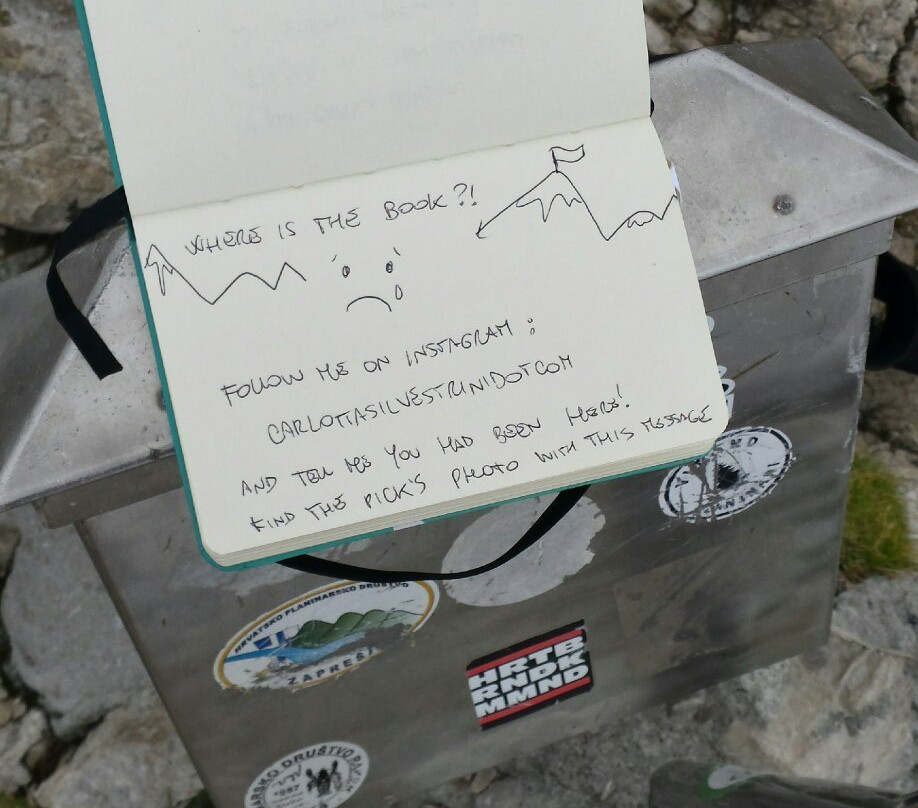 WHERE IS THE BOOK?!
FOLLOW ME ON INSTAGRAM :
CARLOTTASILVESTRINIDOTCOM
AND TELL ME YOU HAD BEEN HERE!
FIND THE PICK'S PHOTO WITH THIS MESSAGE
HRVATSKO PLANINARSKO DRUŠTVO
ZAPREŠI
HRTB
RNDK
MMND
ARSKO DRUŠTVO
1987